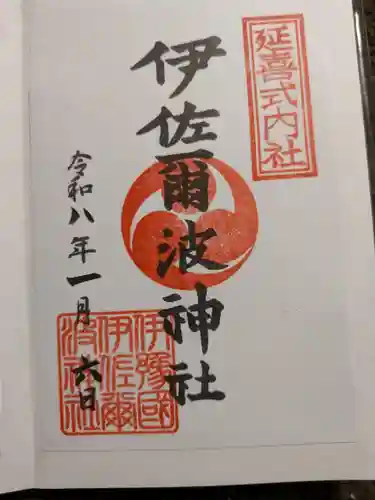 延喜式内社
伊佐爾波神社
令和八年一月六日
伊豫國
伊佐爾
波神社